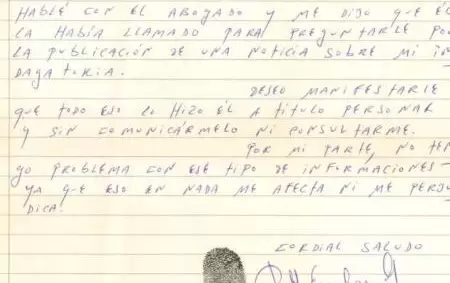 HABLÉ CON EL ABOGADO Y ME DIJO QUE ÉL
LA HABÍA LLAMADO PARA PREGUNTARLE POR
LA PUBLICACIÓN DE UNA NOTICIA SOBRE MI IN
DAGATORIA.
DESEO MANIFESTARLE
QUE TODO ESO LO HIZO ÉL A TÍTULO PERSONAL
Y SIN COMUNICÁRMELO NI CONSULTARME.
POR MI PARTE, NO TEN
GO PROBLEMA CON ESE TIPO DE INFORMACIONES
YA QUE ESO EN NADA ME AFECTA NI ME PERJU
DICA.
CORDIAL SALUDO